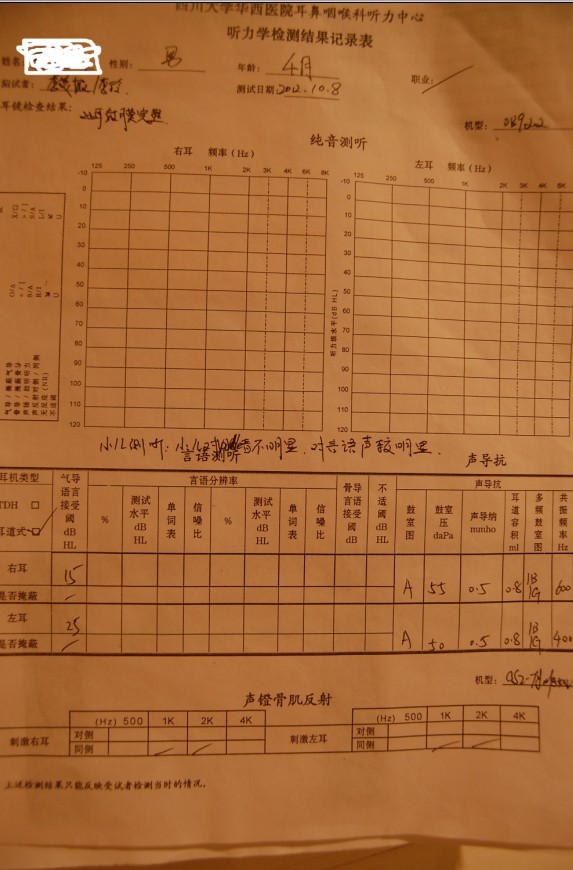 四川大学华西医院耳鼻咽喉科听力中心
听力学检测结果记录表
姓名 性别: 男 年龄: 4月 职业:
测试者: 测试日期: 2012.10.8
耳镜检查结果:
机型:
纯音测听
右耳 频率(Hz) 左耳 频率(Hz)
125 250 500 1K 2K 3K 4K 6K 8K 125 250 500 1K 2K 3K 4K 6K
-10 -10
0 0
10 10
20 20
30 30
40 40
50 50
60 60
70 70
80 80
90 90
100 100
110 110
120 120
听力级水平(dB HL)
气导/掩蔽气导
骨导/掩蔽骨导
声场/助听听力
声反射对侧/同侧
无反应(NR)
不适阈
小儿测听: 不明显, 对 语声较明显.
言语测听 声导抗
耳机类型 气导言语接受阈 dB HL 言语分辨率 骨导言语接受阈 dB HL 不适阈 dB HL 声导抗
TDH □ % 测试水平 dB HL 单词表 信噪比 % 测试水平 dB HL 单词表 信噪比 鼓室图 鼓室压 daPa 声导纳 mmho 耳道容积 ml 多频鼓室图 共振频率 Hz
耳道式 □
右耳 15 A 55 0.5 0.8 1B 1G 600
是否掩蔽
左耳 25 A 50 0.5 0.8 1B 1G 400
是否掩蔽
机型:
声镫骨肌反射
(Hz) 500 1K 2K 4K (Hz) 500 1K 2K 4K
刺激右耳 对侧 刺激左耳 对侧
同侧 同侧
上述检测结果只能反映受试者检测当时的情况。